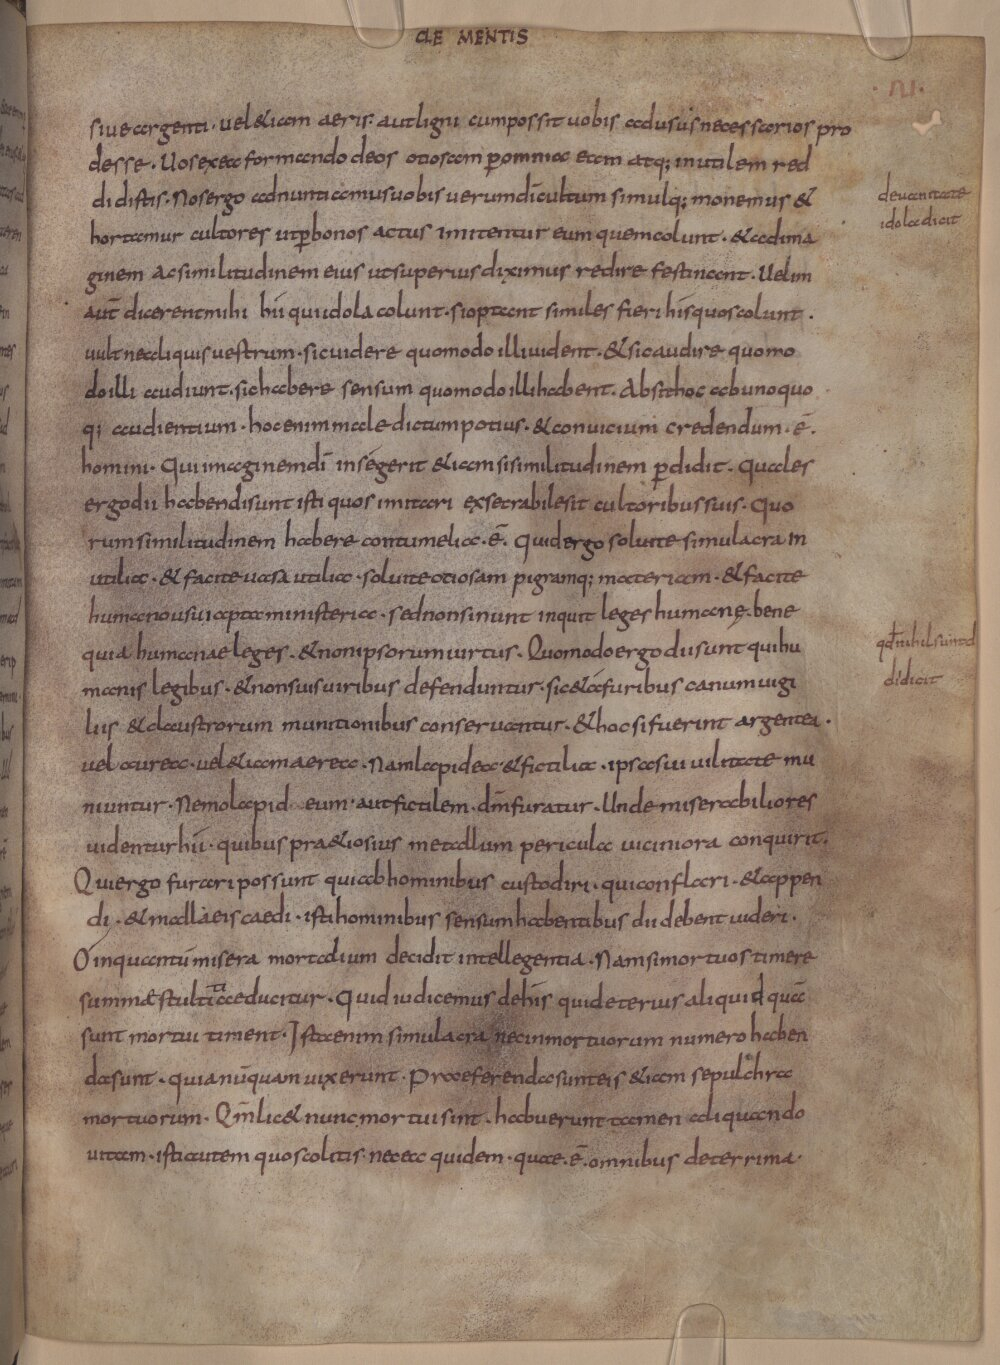 CLEMENTIS
.VI.
siue argenti. uel &iam aeris. aut ligni cum possit uobis ad usus necessarios pro
desse. Uos ex ea formando deos otiosam p omnia eam atq; inutilem red
didistis. Nos ergo adnuntiamus uobis uerum dī cultum simulq; monemus &
hortamur cultores ut p bonos actus imitentur eum quem colunt. & ad ima
ginem ac similitudinem eius ut superius diximus redire festinant. Uelim
aut̄ dicerent mihi hii qui idola colunt. si optant similes fieri his quos colunt.
uult ne aliquis uestrum. sic uidere quomodo illi uident. & sic audire quomo
do illi audiunt. sic habere sensum quomodo illi habent. Absit hoc ab unoquo
q; audientium. hoc enim maledictum potius. & conuicium credendum. ē.
homini. Qui imaginem dī in se gerit &iam si similitudinem pdidit. Quales
ergo dii habendi sunt isti quos imitari exsecrabile sit cultoribus suis. Quo
rum similitudinem habere contumelia. ē. Quid ergo soluite simulacra in
utilia. & facite uasa utilia. soluite otiosam pigramq; materiam. & facite
humano usui apta ministeria. sed non sinunt inquit leges humanę. bene
quia humanae leges. & non ipsorum uirtus. Quomodo ergo dii sunt qui hu
manis legibus. & non suis uiribus defenduntur. sic & a furibus canum uigi
liis & claustrorum munitionibus conseruantur. & hoc si fuerint argentea.
uel aurea. uel &iam aerea. Nam lapidea & fictilia. ipsa sui uilitate mu
niuntur. Nemo lapid eum. aut fictilem. dm̄ furatur. Unde miserabiliores
uidentur hii. quibus pr&iosius metallum pericula uiciniora conquirit.
Qui ergo furari possunt qui ab hominibus custodiri. qui conflari. & appen
di. & malleis caedi. isti hominibus sensum habentibus dii debent uideri.
O in quantū misera mortalium decidit intellegentia. Nam si mortuos timere
summæ stultitiae ducitur. Quid iudicemus de his qui deterius aliquid quā
sunt mortui timent. Ista enim simulacra nec in mortuorum numero haben
da sunt. quia nūquam uixerunt. Praeferenda sunt eis &iam sepulchra
mortuorum. Qm̄ lic& nunc mortui sint. habuerunt tamen aliquando
uitam. isti autem quos colitis. nec ea quidem. quae. ē. omnibus deterrima.
de uanitate
idola dicit
qd̄ nihil sunt d
di dicit